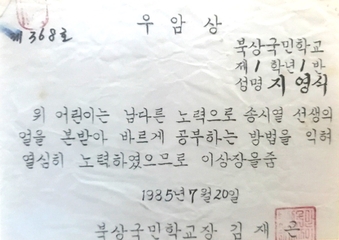 우암상
제368호
북상국민학교
제1학년1반
성명 지영식
위 어린이는 남다른 노력으로 송시열 선생의
얼을 본받아 바르게 공부하는 방법을 익혀
열심히 노력하였으므로 이상장을줌
1985년7월20일
북상국민학교장 김제은